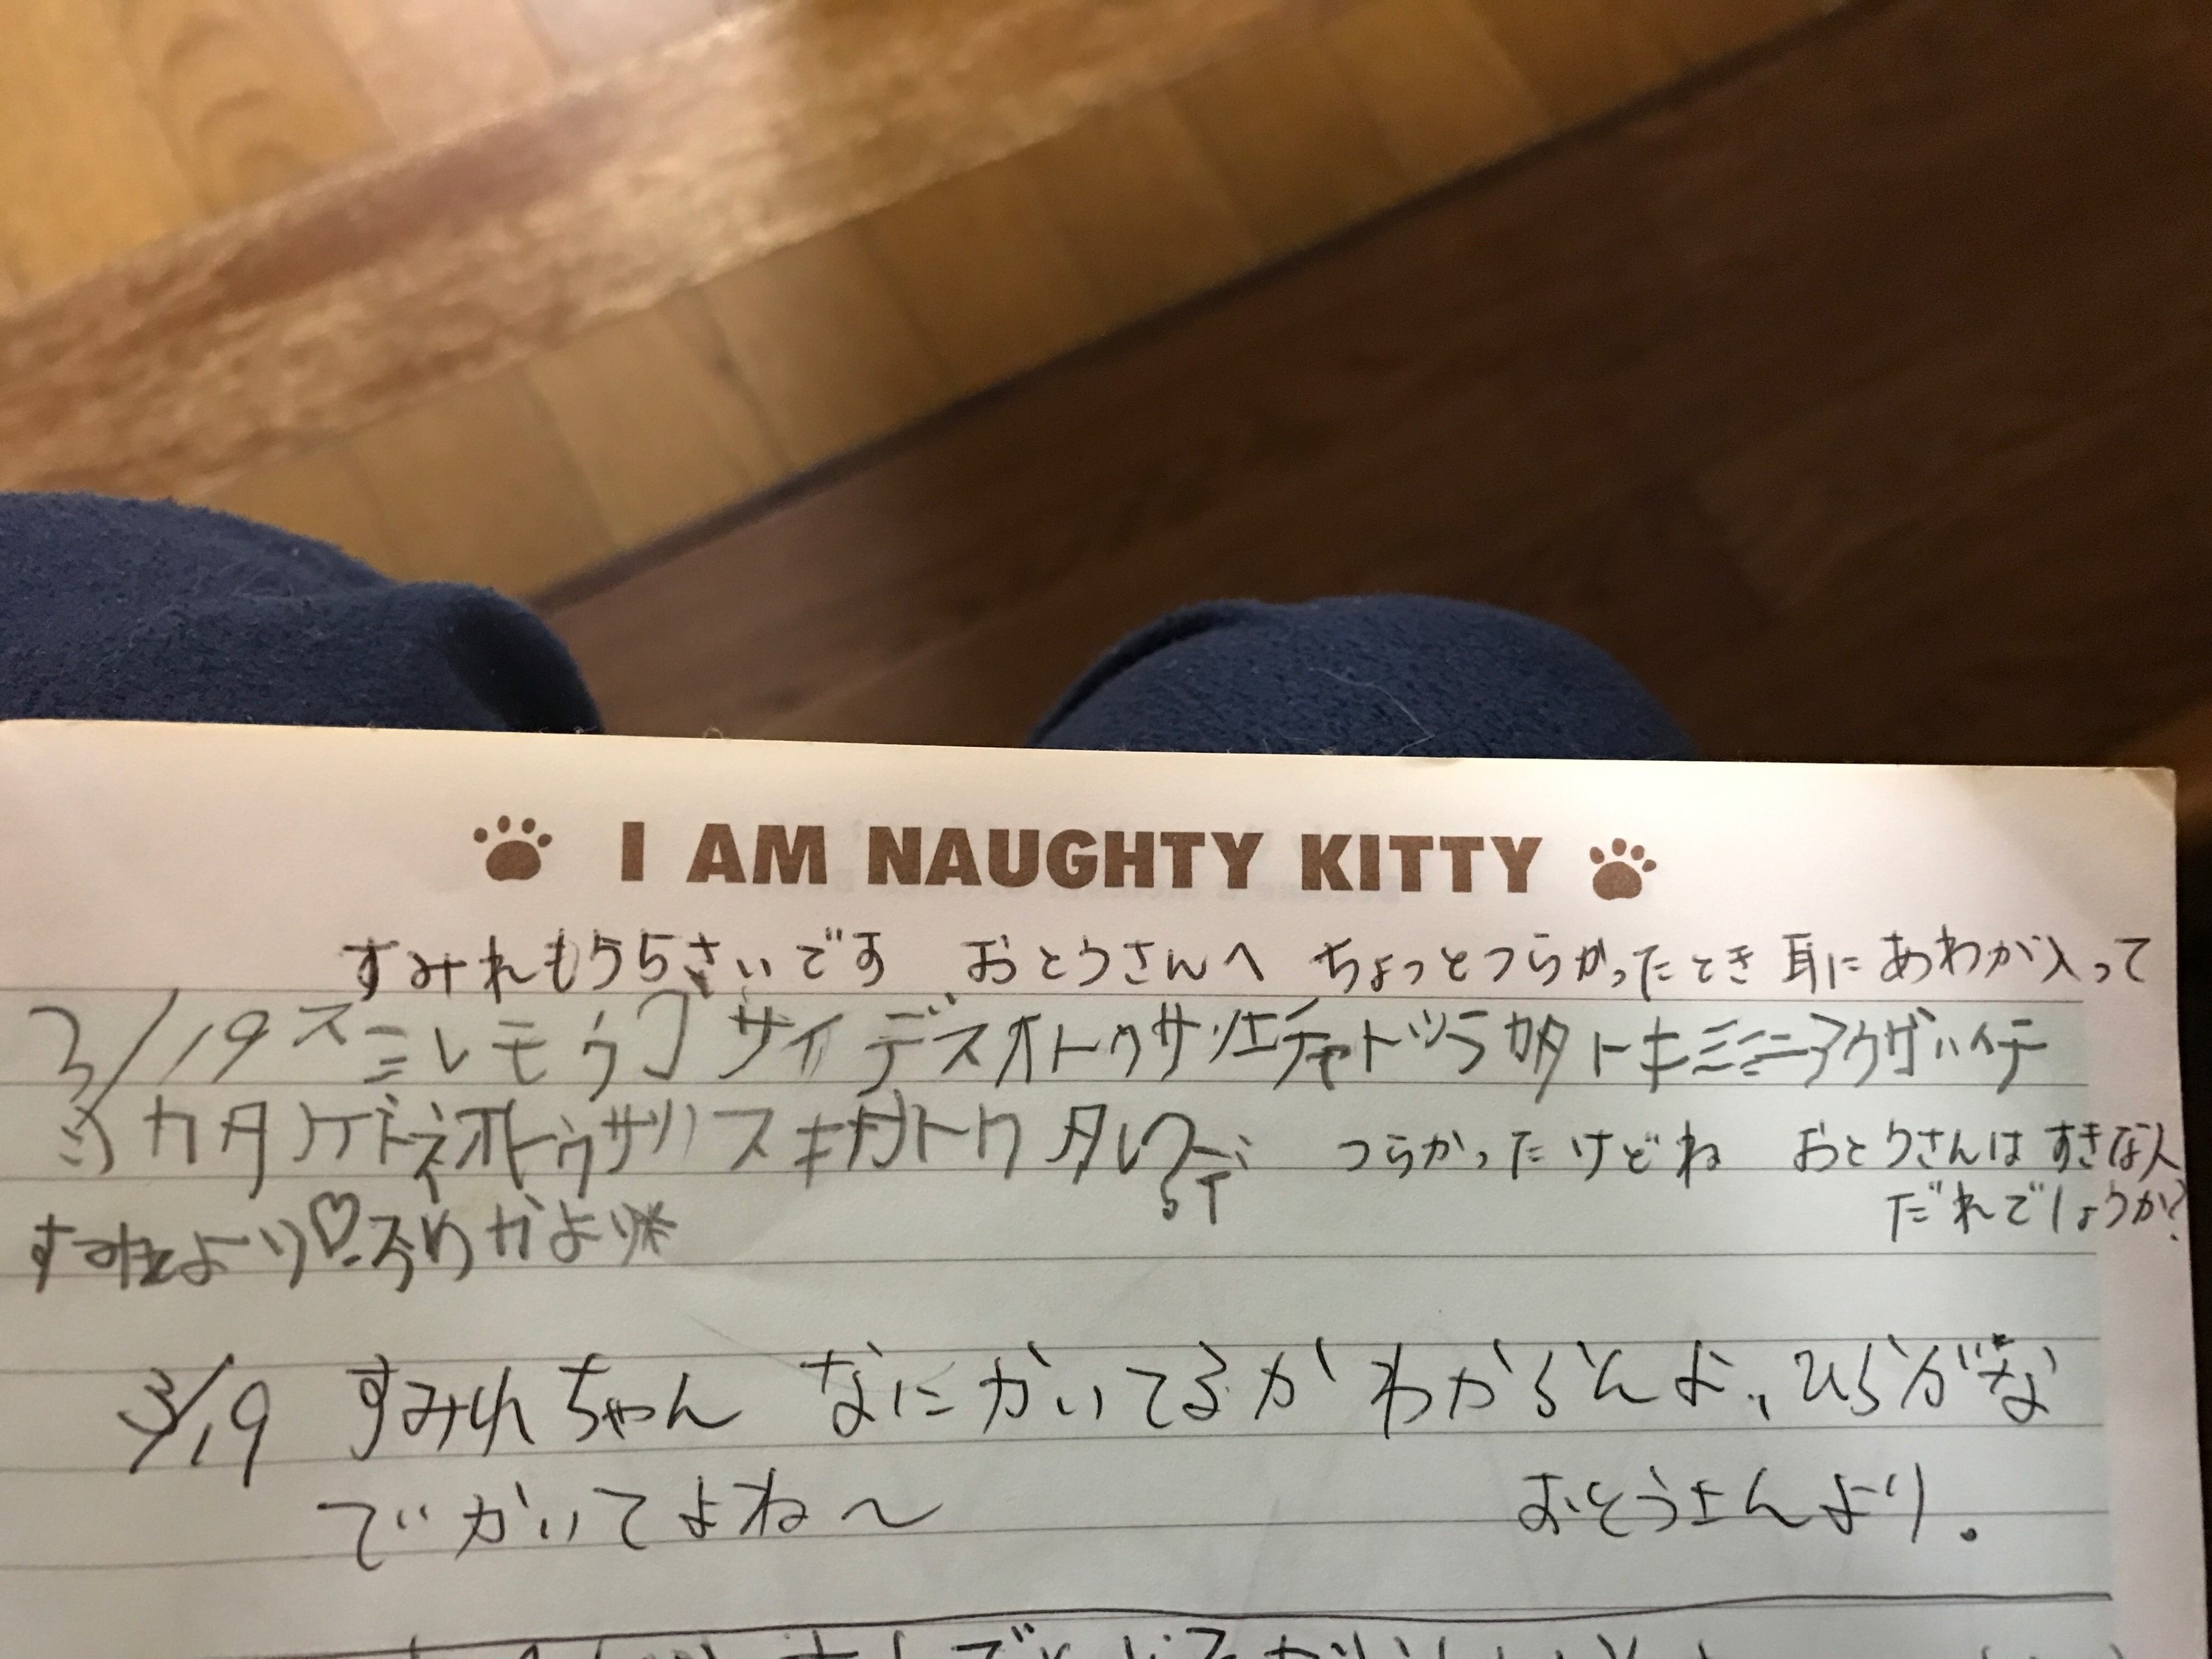 I AM NAUGHTY KITTY
すみれもう5さいです おとうさんへ ちょっとつらかったとき 耳にあわが入って
3/19 スミレモウ サイデスオトウサンエチャトツラカタトキミミニアワガハイテ
ツカタ ケドネオトウサンハスキナ ト ダレ つらかったけどね おとうさんは すきな人
だれでしょうか?
すみれより♡ より
3/19 すみれちゃん なにかいてるか わからんよ、ひらがな
でかいてよね〜 おとうさんより.